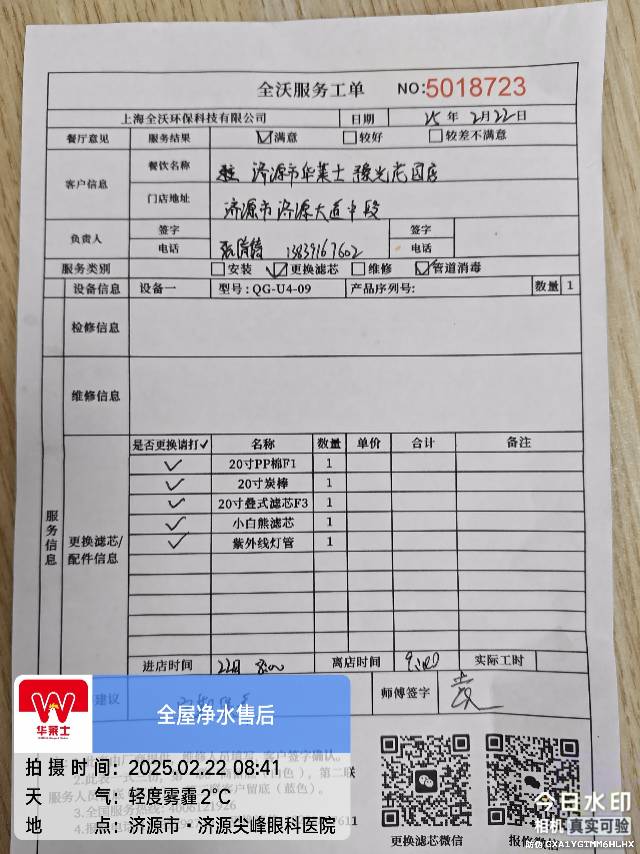 全沃服务工单 NO:5018723
上海全沃环保科技有限公司 日期 25年2月22日
餐厅意见 服务结果 ☑满意 □较好 □较差不满意
客户信息 餐饮名称 济源市华莱士豫光花园店
门店地址 济源市济源大道中段
负责人 签字 签字
电话 13839167602 电话
服务类别 □安装 ☑更换滤芯 □维修 ☑管道消毒
设备信息 设备一 型号:QG-U4-09 产品序列号: 数量 1
检修信息
维修信息
服务信息
更换滤芯/配件信息
是否更换请打✓ 名称 数量 单价 合计 备注
✓ 20寸PP棉F1 1
✓ 20寸炭棒 1
✓ 20寸叠式滤芯F3 1
✓ 小白熊滤芯 1
✓ 紫外线灯管 1
进店时间 离店时间 实际工时
建议 师傅签字
客户签字确认。
第二联
客户留底(蓝色)。
服务人员
3.全国服务热线:4006121926
更换滤芯微信
华莱士
全屋净水售后
拍摄时间:2025.02.22 08:41
天气:轻度雾霾 2℃
地点:济源市·济源尖峰眼科医院
今日水印
相机 真实可验
防伪 GXA1YGTMM6HLHX